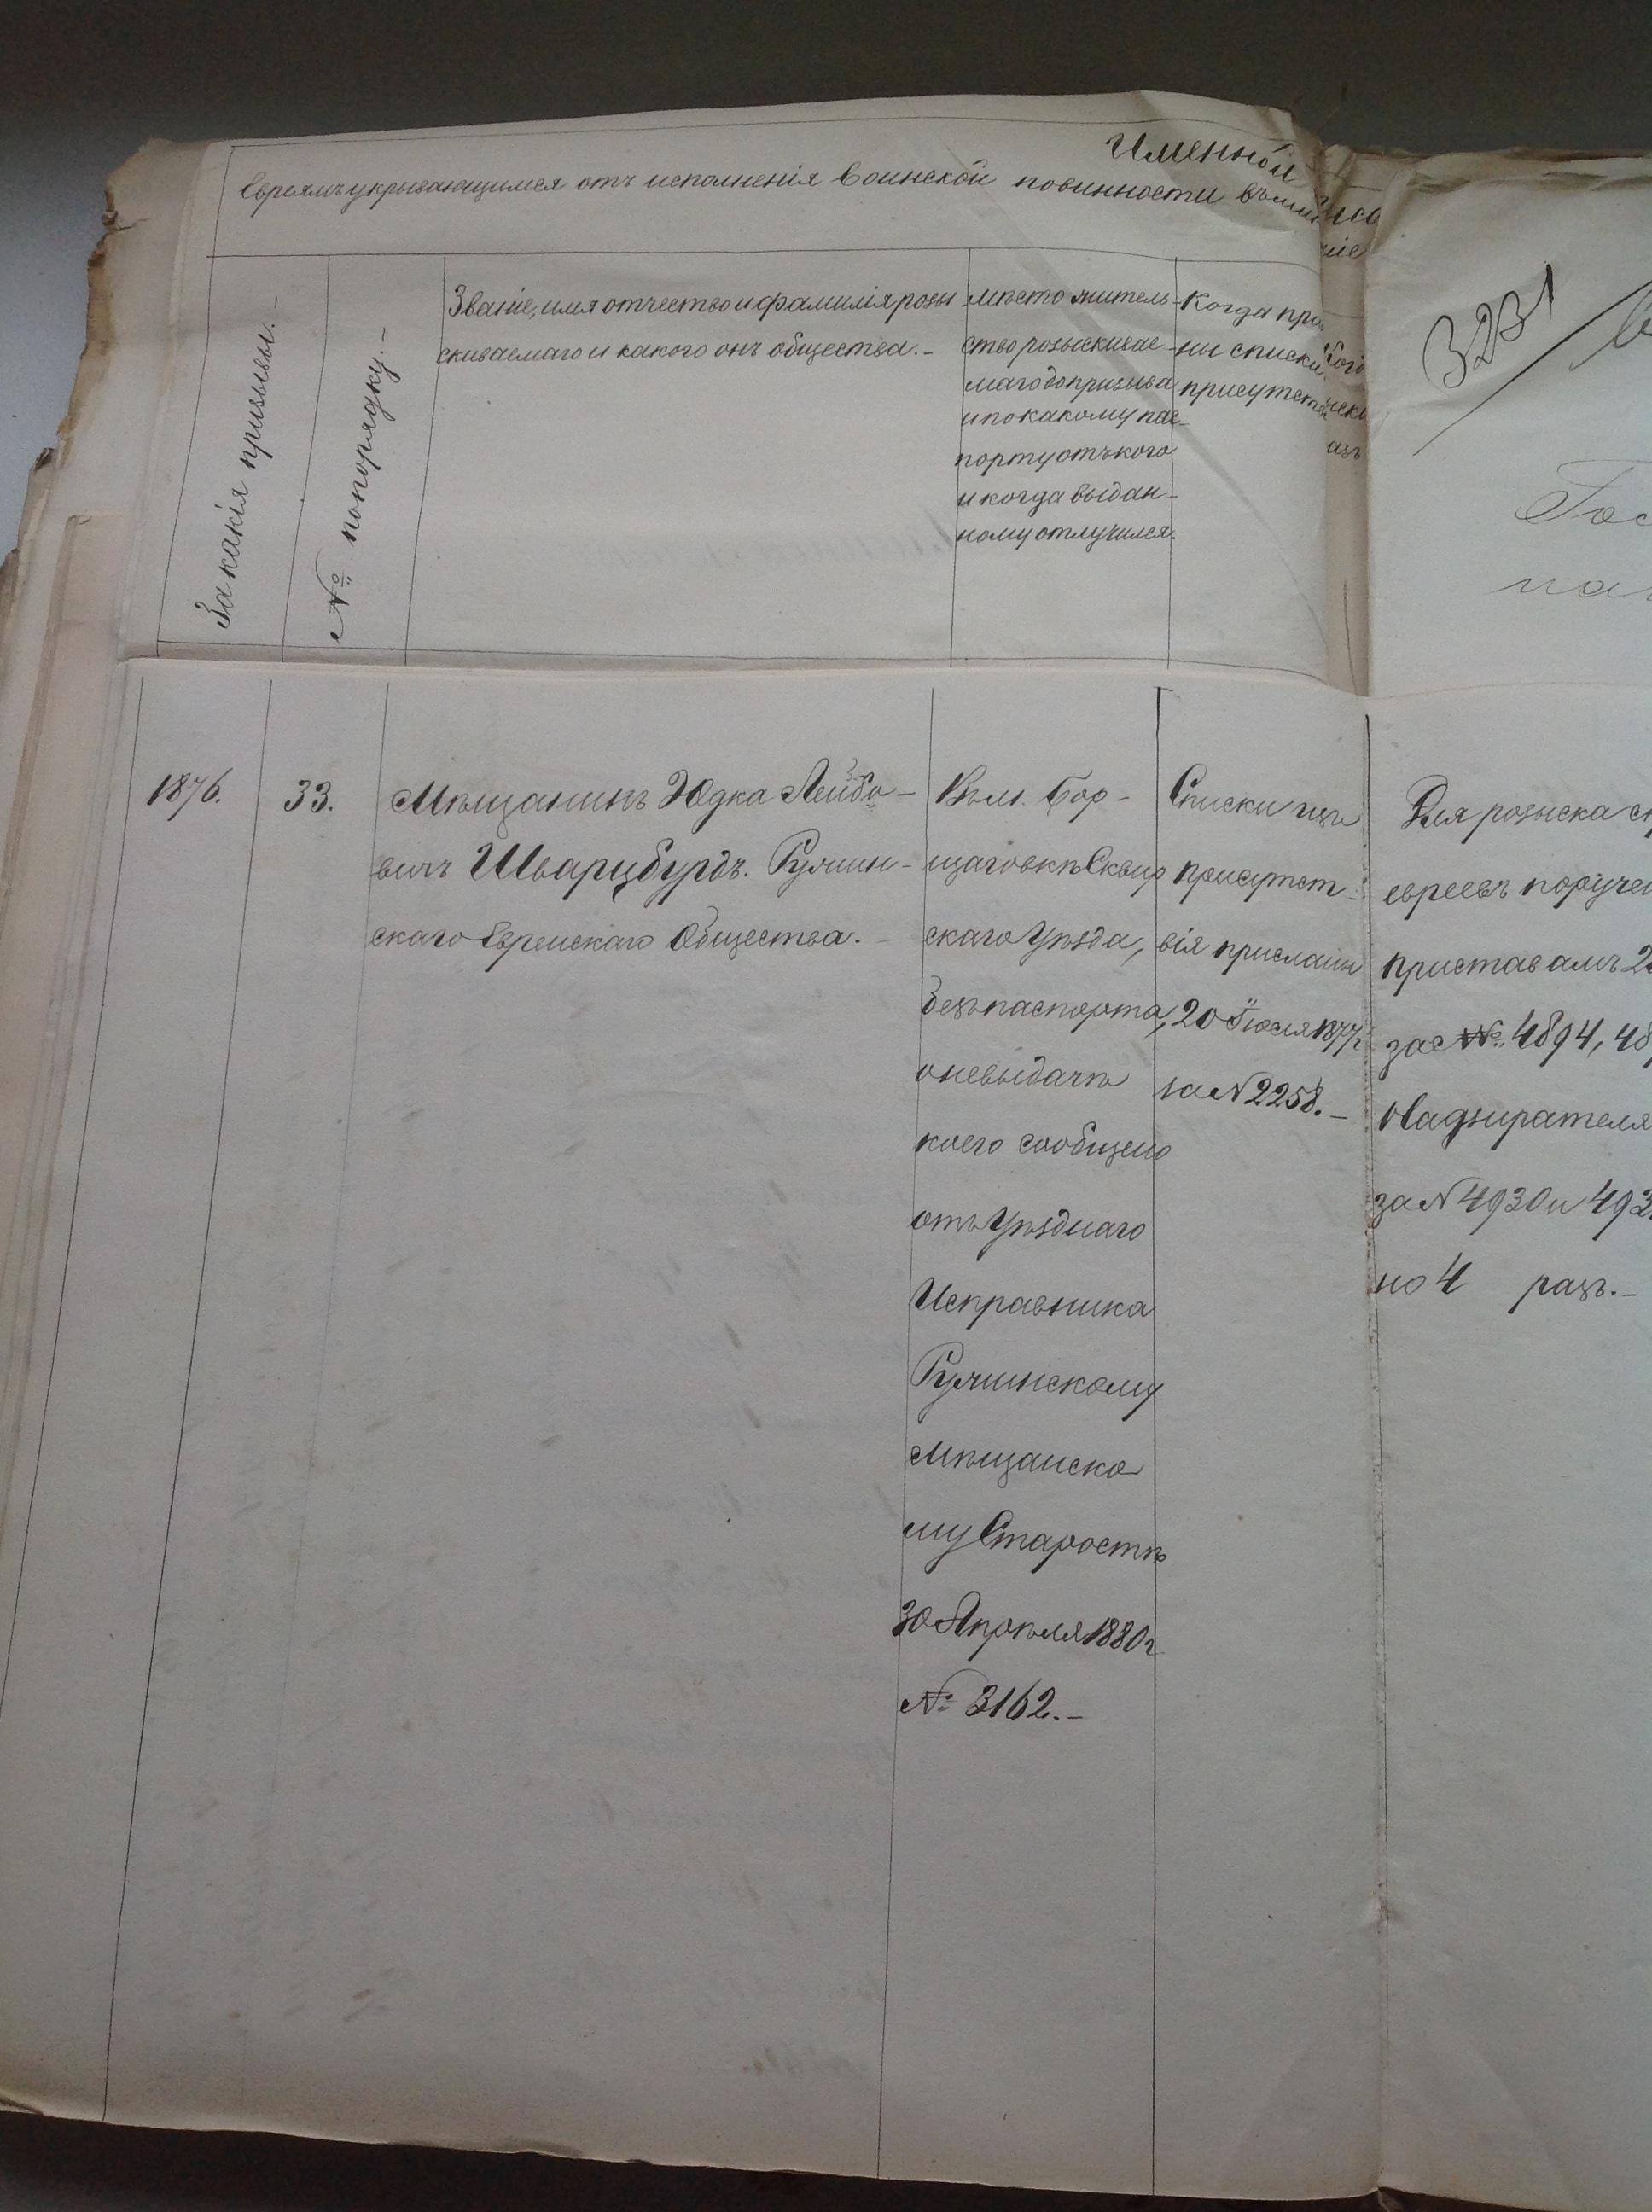 Именной
Евреямъ укрывающимся отъ исполненія воинской повинности
За какія призывы.-
№ по порядку.-
Званіе, имя отчество и фамилія розы
скиваемаго и какого онъ общества.-
мѣсто житель-
ство розыскивае-
маго до призыва
и по какому пас-
порту отъ кого
и когда выдан-
ному отлучился.
Когда при
ны списки
присутств
3231
1876.
33.
Мѣщанинъ Юдка Лейбо-
вичъ Шварцбурдъ. Ружин-
скаго Еврейскаго Общества.-
Въ м. Бор-
щаговкѣ Сквир
скаго Уѣзда,
безъ паспорта,
о невыдачѣ
коего сообщено
отъ Уѣзднаго
Исправника
Ружинскому
Мѣщанско
му Старостѣ
30 Апрѣля 1880 г
№ 3162.-
Списки изъ
присутст-
вія присланы
20 Іюля 1877 г.
за N 2258.-
Для розыска с
евреевъ поруче
приставамъ 2
за №. 4894, 48
Надзирателя
за N 4930 и 493
но 4 разъ.-